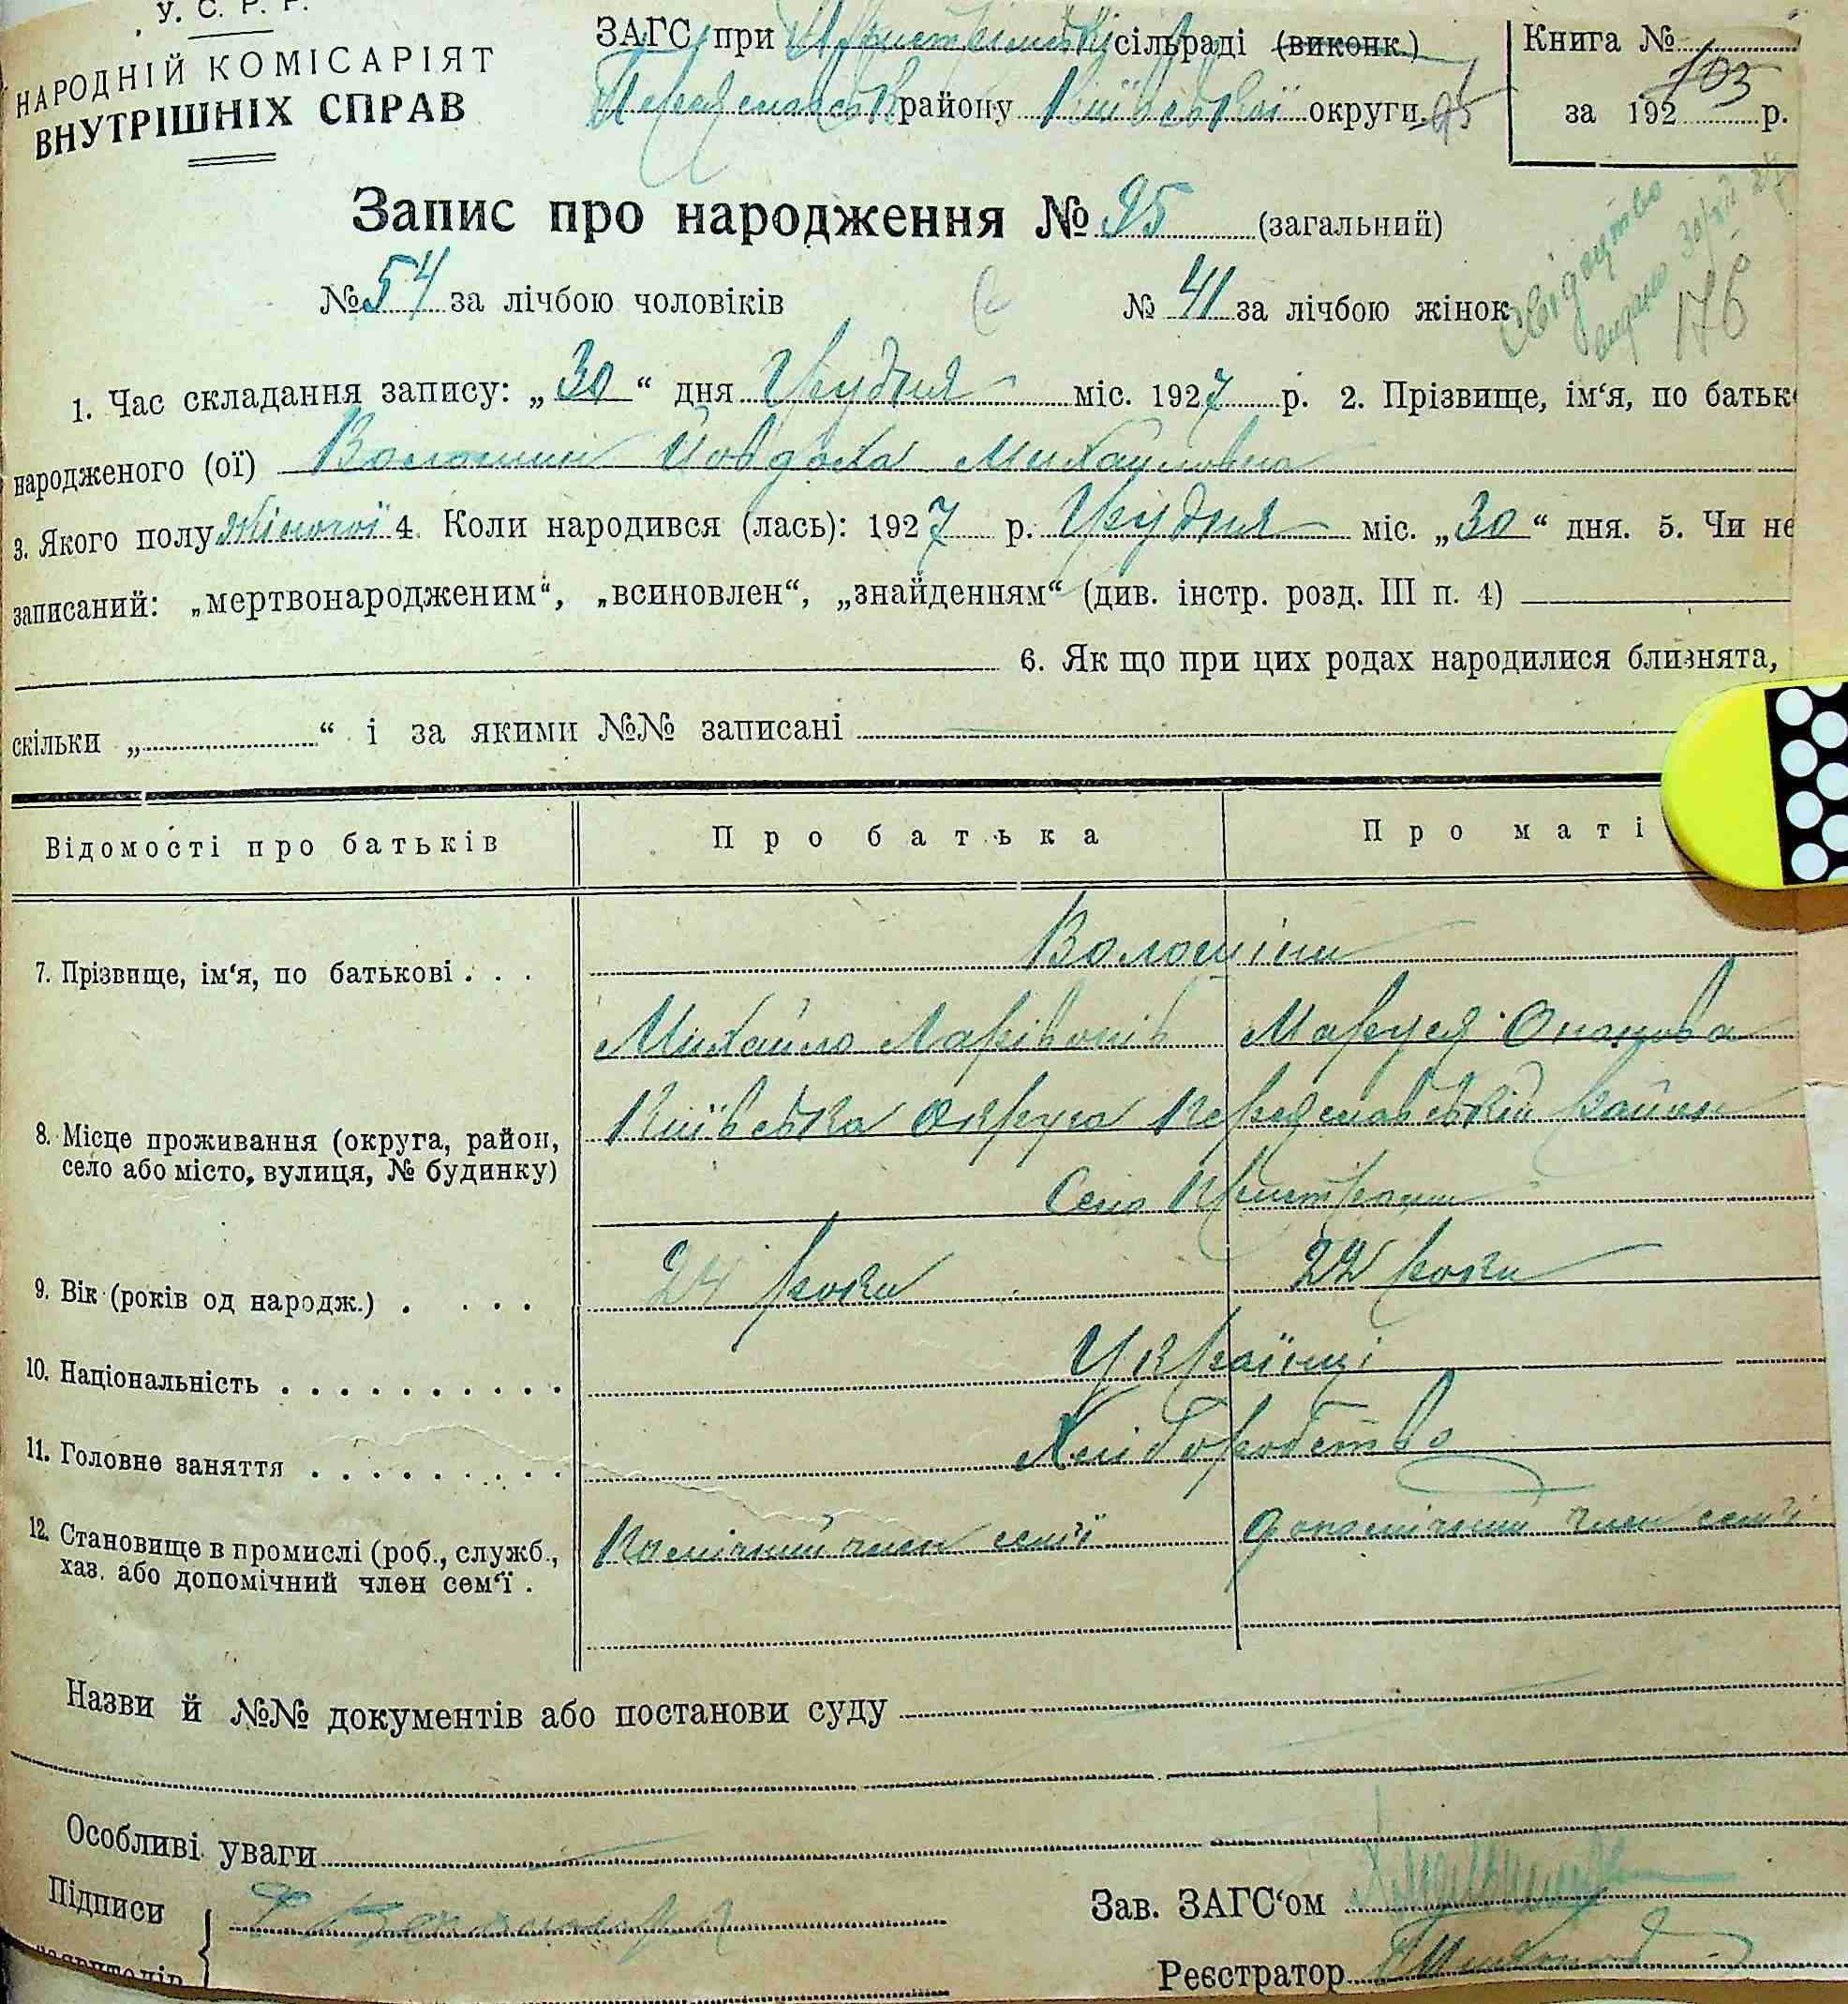 У. С. Р. Р.
НАРОДНІЙ КОМІСАРІЯТ
ВНУТРІШНІХ СПРАВ
ЗАГС при сільраді (виконк.)
Переяславськ району Київської округи. 95
Книга №
103
за 192 р.
Запис про народження № 95 (загальний)
№ 54 за лічбою чоловіків № 41 за лічбою жінок
Свідоцтво
видано 30/XII 27
176
1. Час складання запису: „30“ дня Грудня міс. 1927 р. 2. Прізвище, ім‘я, по батьк
народженого (ої) Волошин Йовдоха Михайловна
3. Якого полу жіночої 4. Коли народився (лась): 1927 р. Грудня міс. „30“ дня. 5. Чи не
записаний: „мертвонародженим“, „всиновлен“, „знайденням“ (див. інстр. розд. III п. 4)
6. Як що при цих родах народилися близнята,
скільки „ “ і за якими №№ записані
Відомості про батьків Про батька Про маті
7. Прізвище, ім‘я, по батькові . . . Волошіни
Михайло Ларівонів Маруся Опанова
8. Місце проживання (округа, район, село або місто, вулиця, № будинку) Київська округа Переяславський район
Село
9. Вік (років од народж.) . . . . 24 роки 22 роки
10. Національність . . . . . . . . . . Українці
11. Головне заняття . . . . . . . . . Хліборобство
12. Становище в промислі (роб., служб., хаз. або допомічний член сем‘ї . Помічний член сем‘ї Допомічний член сем‘ї
Назви й №№ документів або постанови суду
Особливі уваги
Підписи
Зав. ЗАГС‘ом
Реєстратор